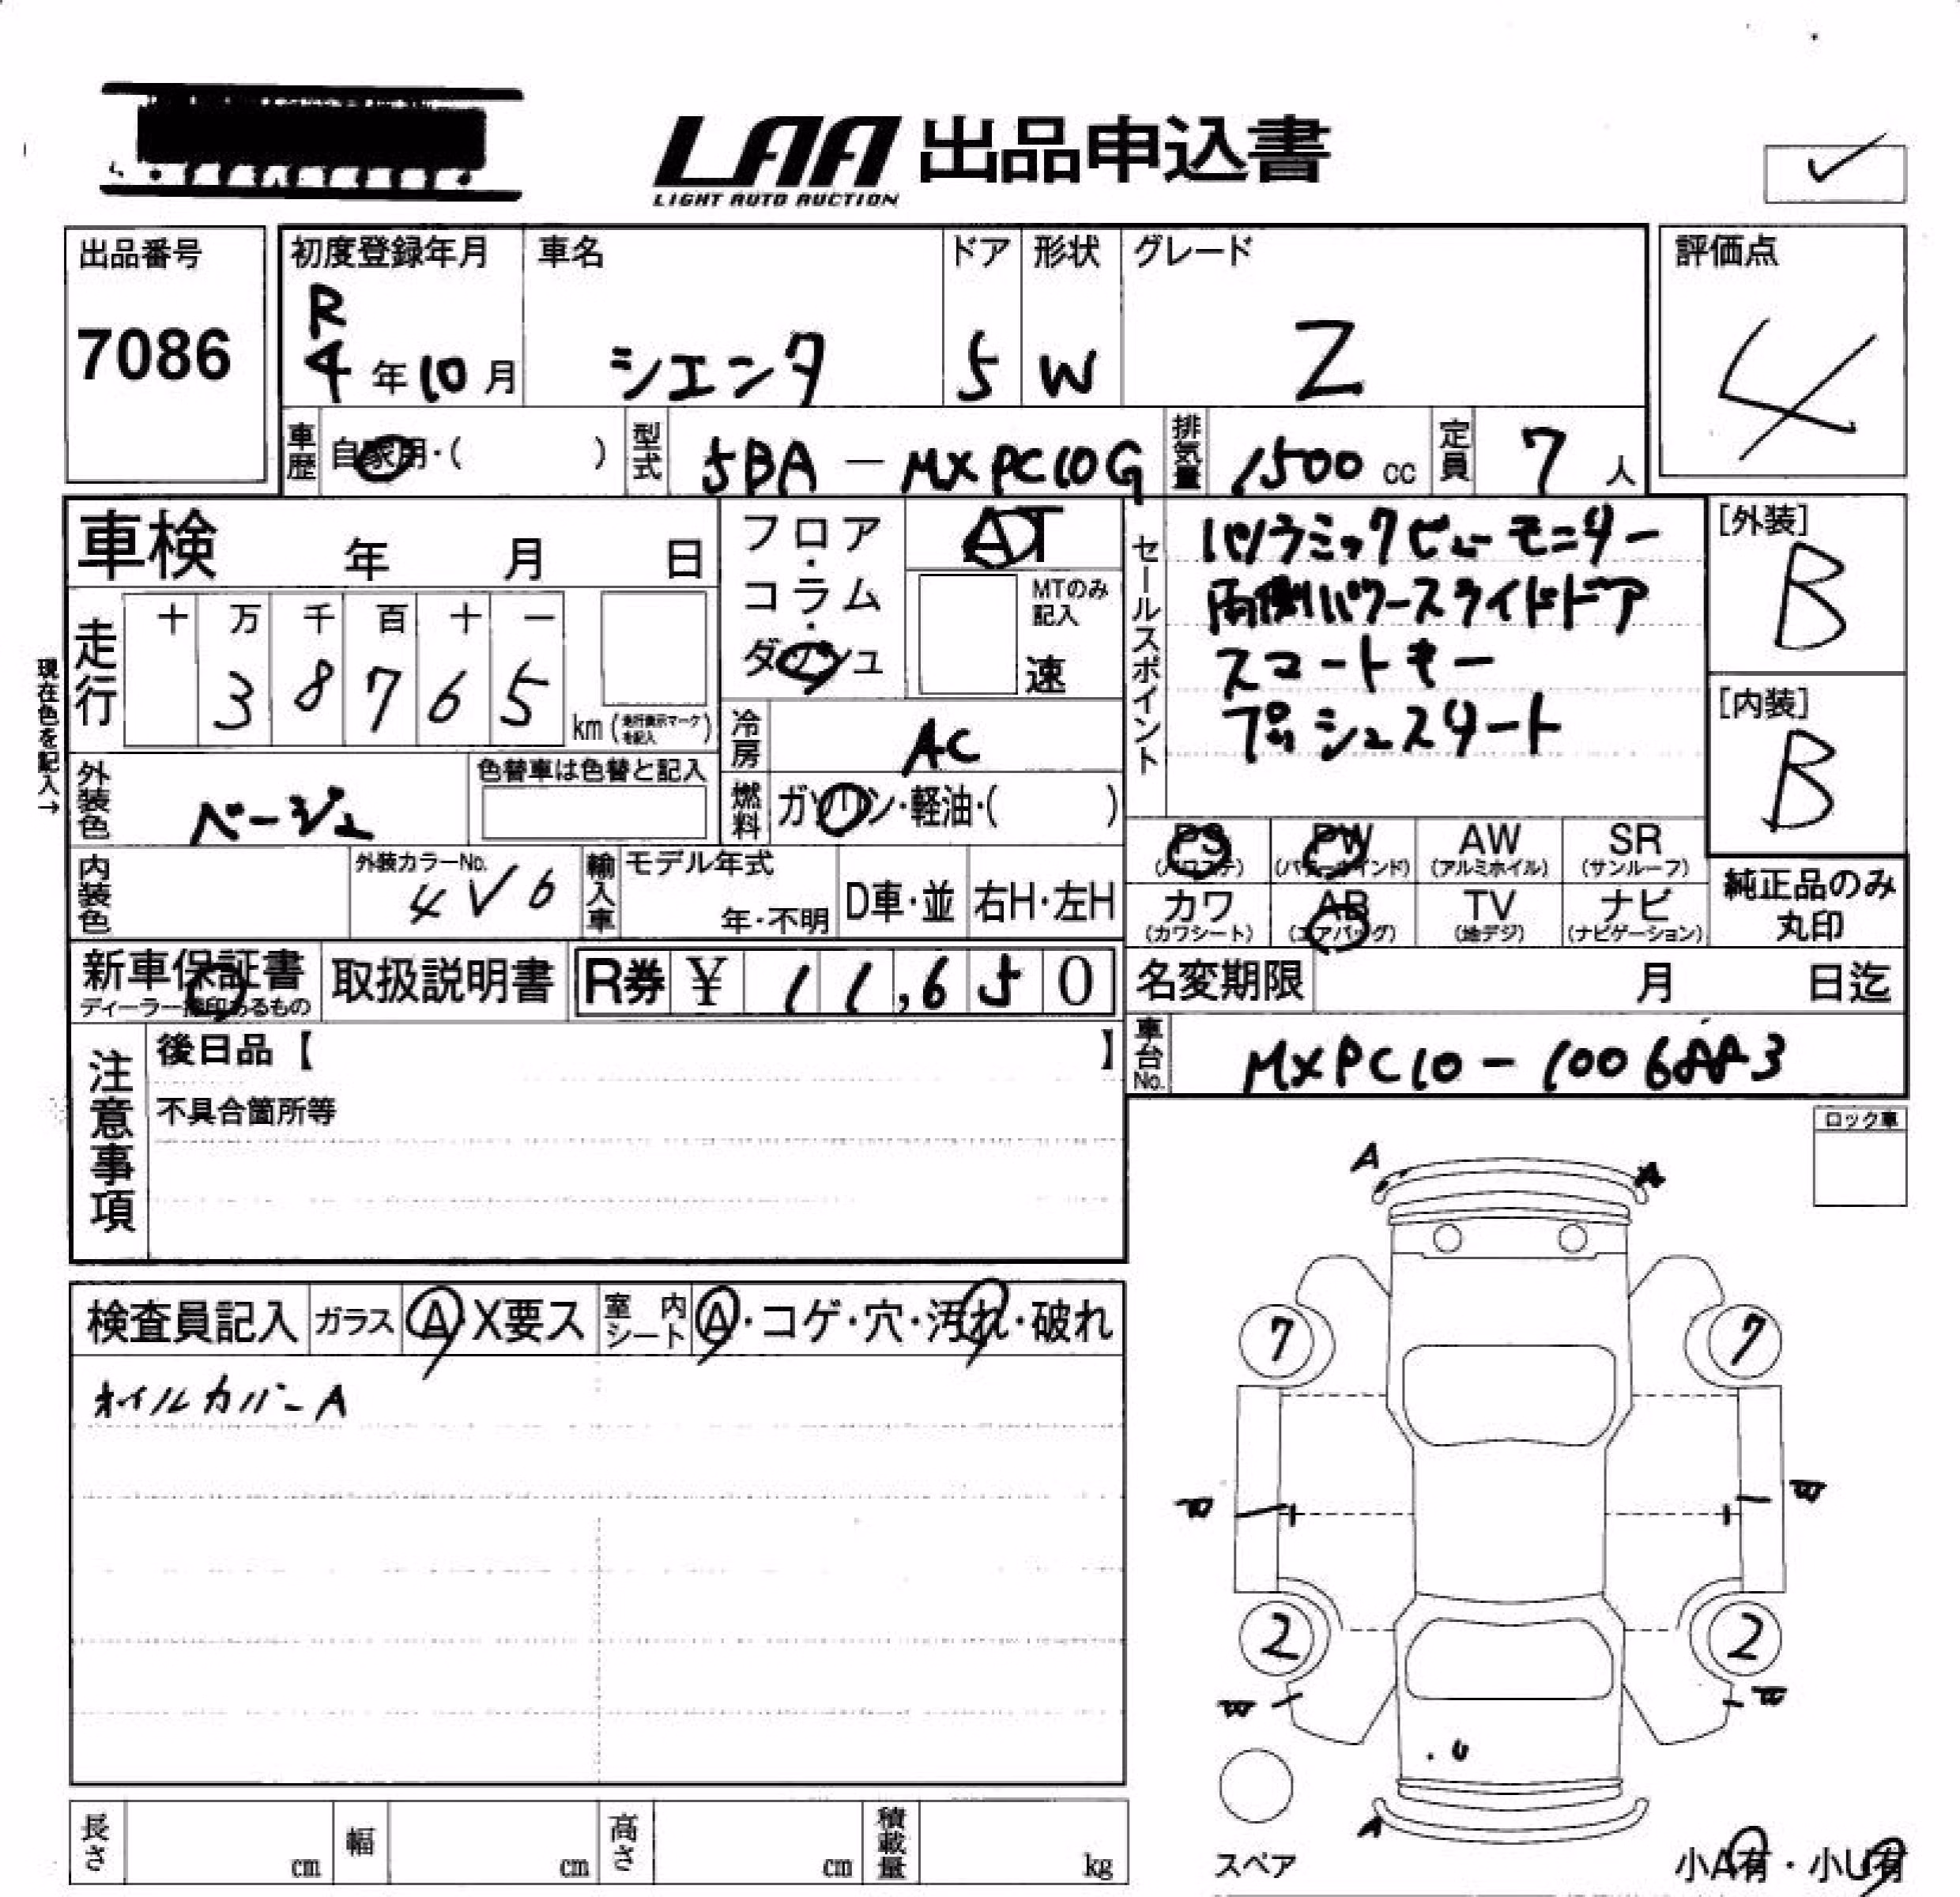 LAA 出品申込書
LIGHT AUTO AUCTION
出品番号
7086
初度登録年月
R
4年10月
車名
シエンタ
ドア
5
形状
W
グレード
Z
評価点
4
車歴 自家用・( )
型式 5BA-MXPC10G
排気量 1500cc
定員 7人
車検 年 月 日
走行 十万千百十一
38765
km(走行表示マークを記入)
現在色を記入→
フロア・コラム・ダッシュ
AT
MTのみ記入
速
冷房 AC
燃料 ガソリン・軽油・( )
セールスポイント
パノラミックビューモニター
両側パワースライドドア
スマートキー
プッシュスタート
[外装]
B
[内装]
B
外装色 ベージュ
色替車は色替と記入
内装色
外装カラーNo.
4V6
輸入車 モデル年式
年・不明
D車・並
右H・左H
PS PW AW SR
(パワステ) (パワーウインド) (アルミホイル) (サンルーフ)
カワ AB TV ナビ
(カワシート) (エアバッグ) (地デジ) (ナビゲーション)
純正品のみ
丸印
新車保証書
ディーラー捺印あるもの
取扱説明書
R券 ¥ 11,650
名変期限 月 日迄
車台No. MXPC10-1006883
注意事項
後日品【 】
不具合箇所等
ロック車
検査員記入 ガラス A X要ス 室内シート A・コゲ・穴・汚れ・破れ
ホイルカバーA
A
A
7
7
W
W
2
2
W
W
.U
A
スペア
小A有・小U有
長さ cm 幅 cm 高さ cm 積載量 kg